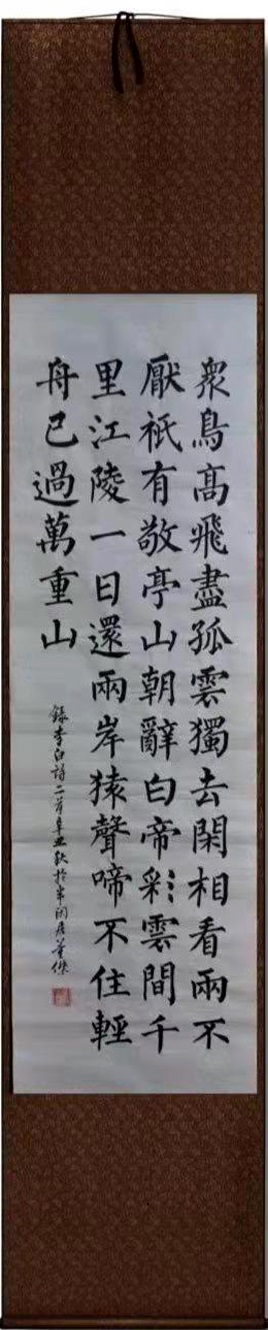 眾鳥高飛盡孤雲獨去閑相看兩不
厭祇有敬亭山朝辭白帝彩雲間千
里江陵一日還兩岸猿聲啼不住輕
舟已過萬重山
錄李白詩二首辛丑秋於半閑居